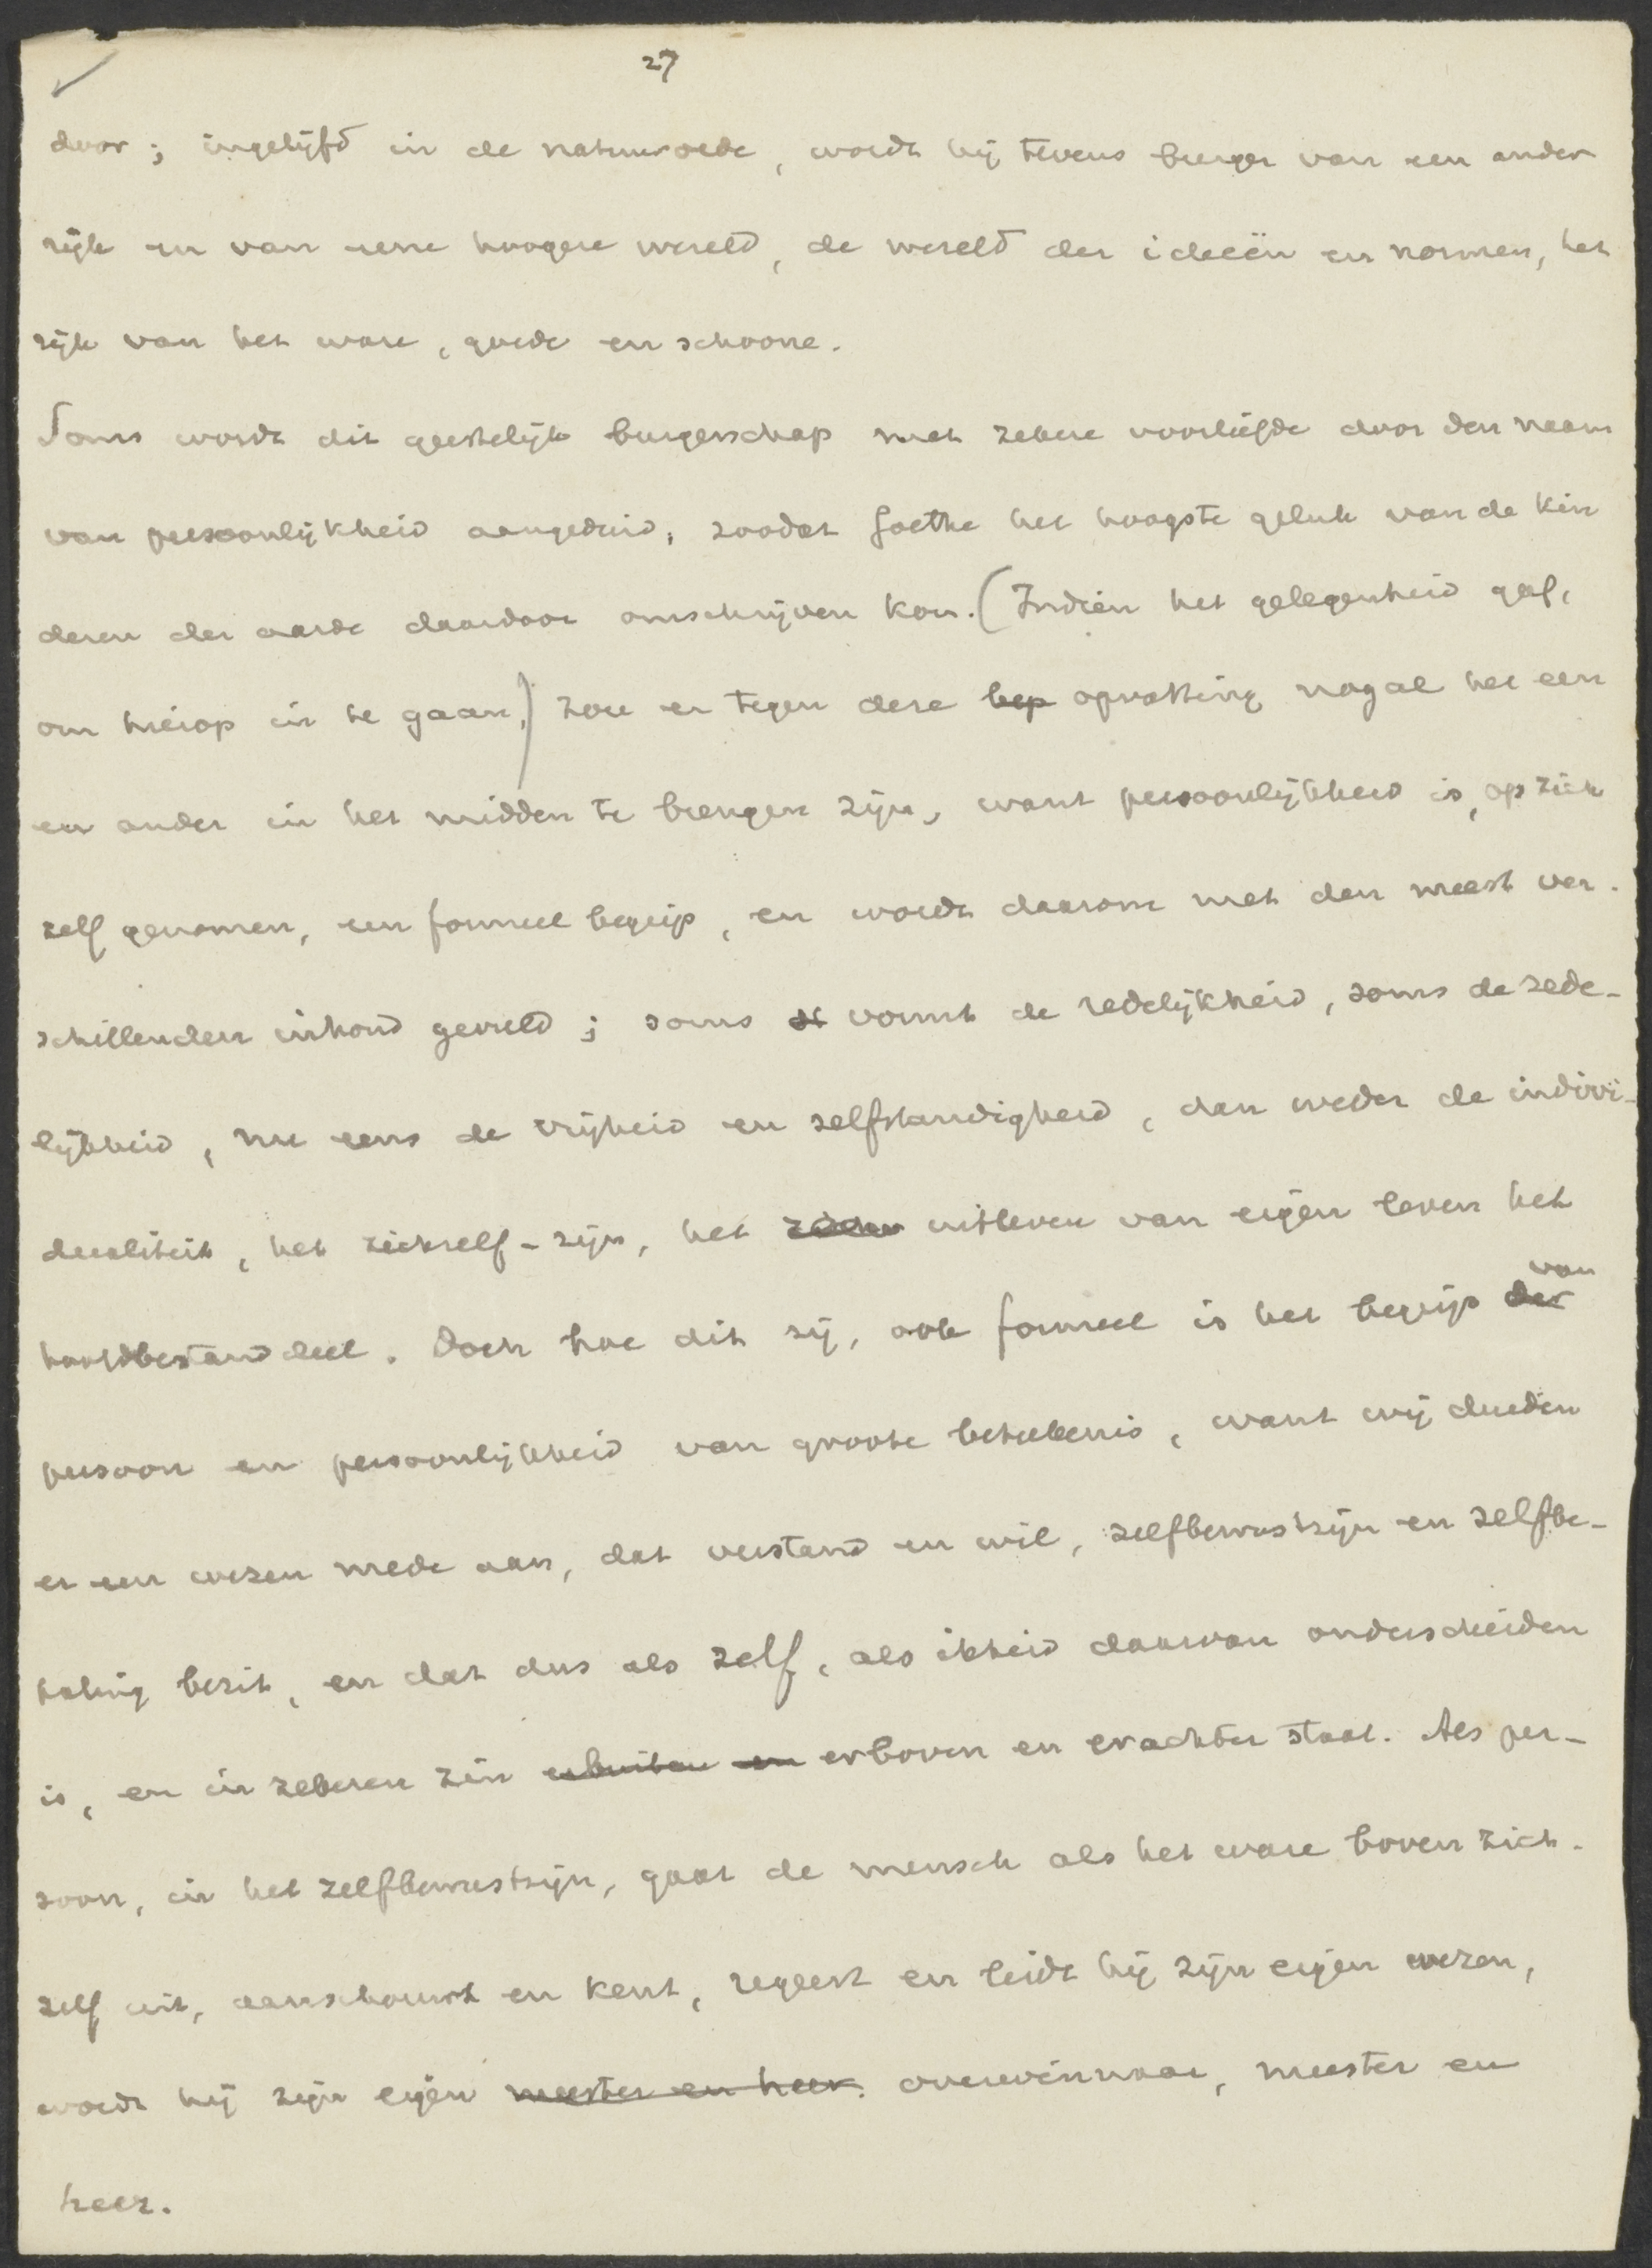 27
door; ingelijfd in de natuurorde, wordt hij tevens burger van een ander
rijk en van eene hoogere wereld, de wereld der ideeën en normen, het
rijk van het ware, goede en schoone.
Soms wordt dit geestelijk burgerschap met zekere voorliefde door den naam
van persoonlijkheid aangeduid, zoodat Goethe het hoogste geluk van de kin
deren der aarde daardoor omschrijven kon. (Indien het gelegenheid gaf,
om hierop in te gaan,) zou er tegen deze bep opvatting nogal het een
en ander in het midden te brengen zijn, want persoonlijkheid is, op zich
zelf genomen, een formeel begrip, en wordt daarom met den meest ver-
schillenden inhoud gevuld; soms vormt de redelijkheid, soms de zede-
lijkheid, nu eens de vrijheid en zelfstandigheid, dan weder de indivi-
dualiteit, het zichzelf-zijn, het uitleven van eigen leven het
hoofdbestanddeel. Doch hoe dit zij, ook formeel is het begrip der van
persoon en persoonlijkheid van groote beteekenis, want wij duiden
er een wezen mede aan, dat verstand en wil, zelfbewustzijn en zelfbe-
paling bezit, en dat dus als zelf, als ikheid daarvan onderscheiden
is, en in zekeren zin erbuiten en erboven en erachter staat. Als per-
soon, in het zelfbewustzijn, gaat de mensch als het ware boven zich-
zelf uit, aanschouwt en kent, regeert en leidt hij zijn eigen wezen,
wordt hij zijn eigen meester en heer. overwinnaar, meester en
heer.